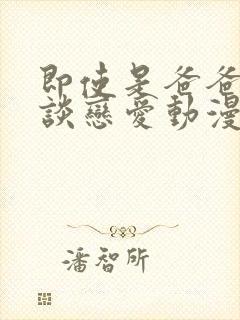 即使是爸爸
談戀愛動漫
潘智所